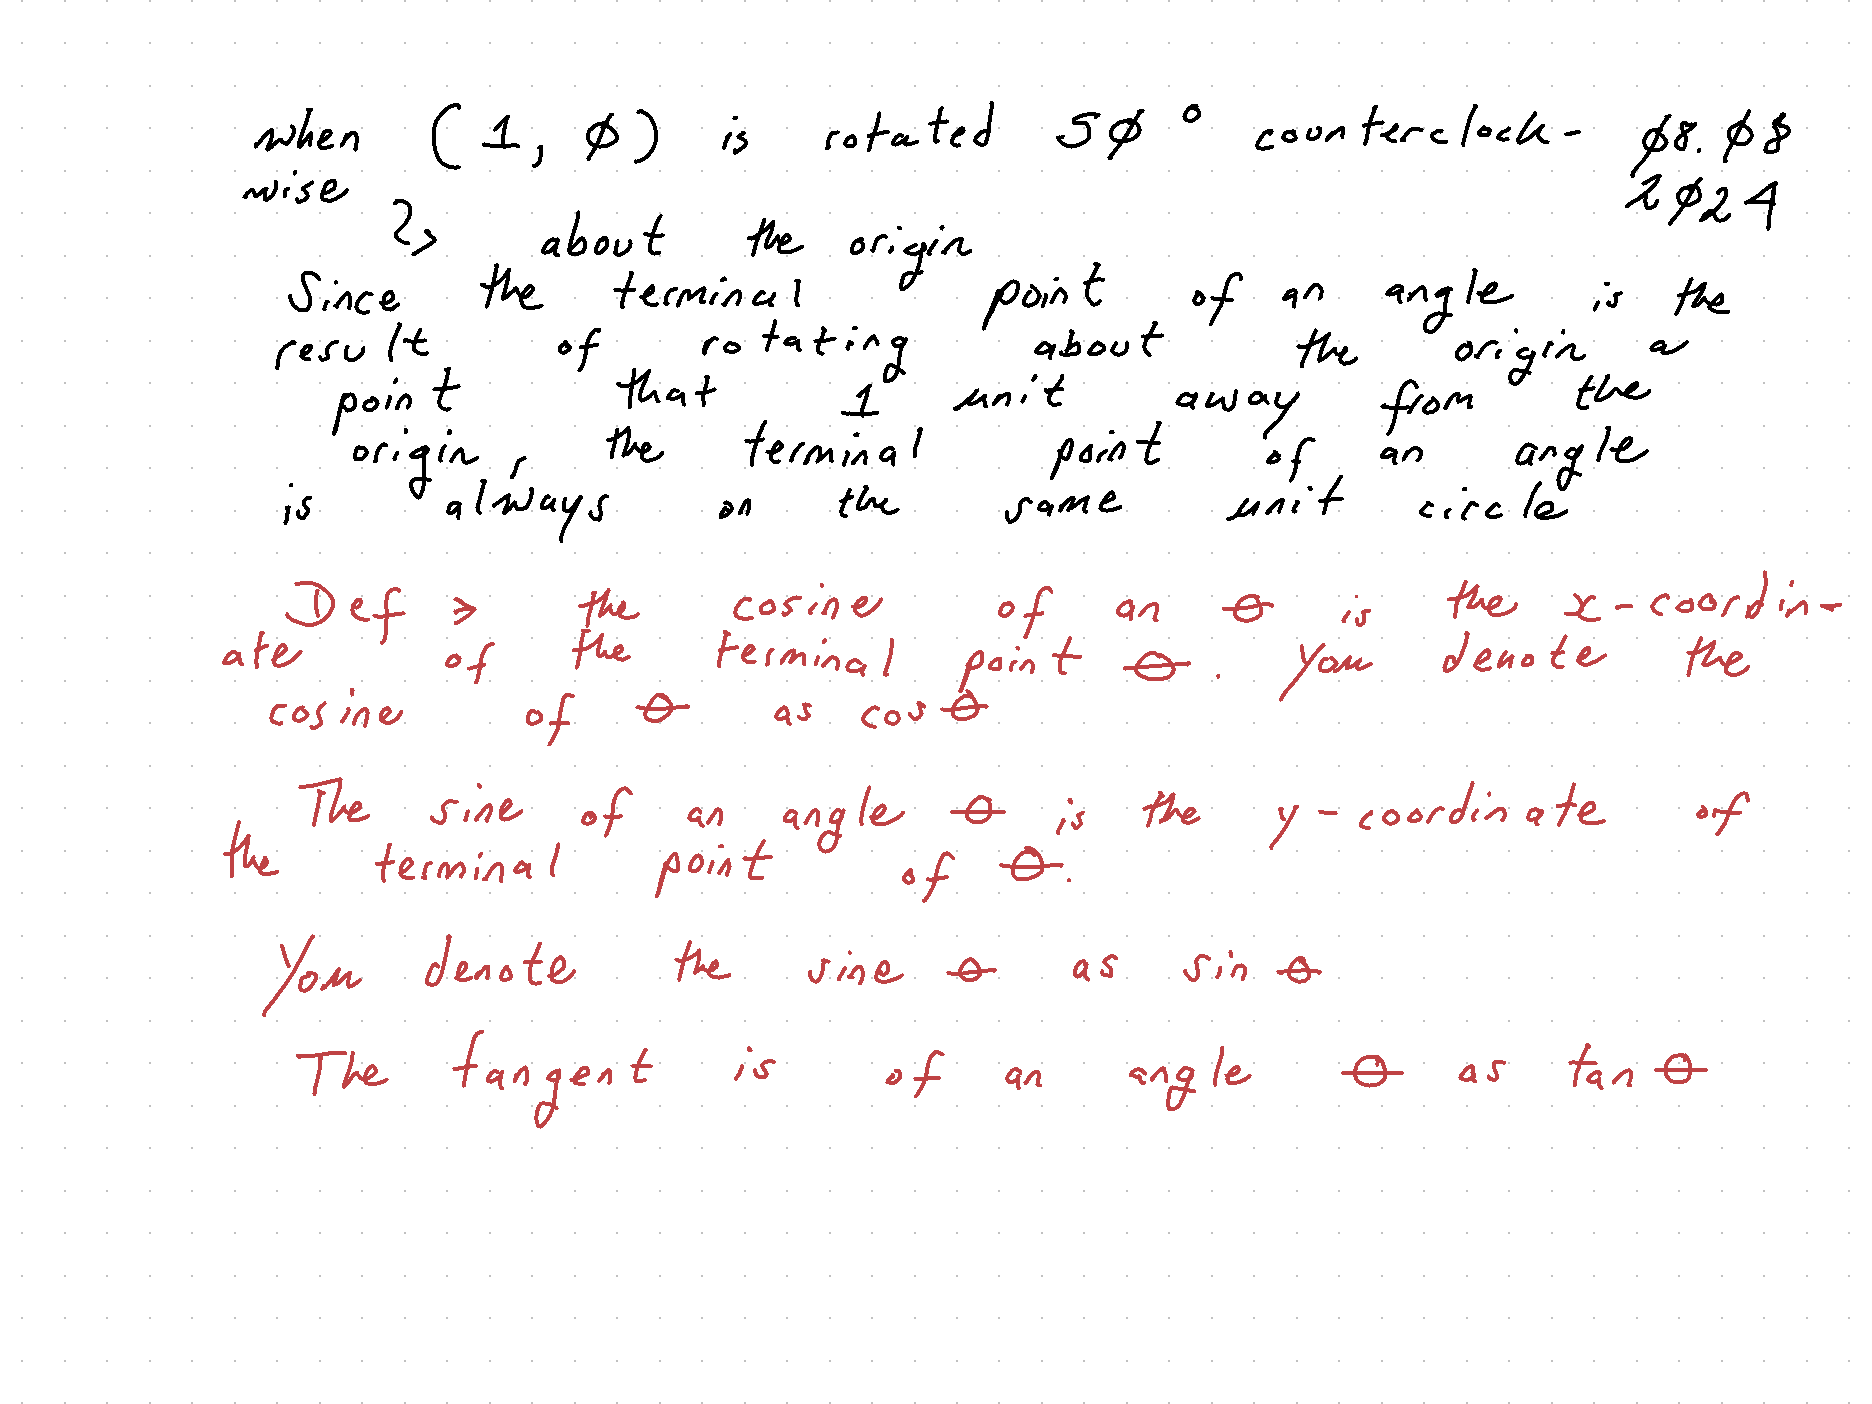 when (1, 0) is rotated 50° counterclock- 08.08
wise 2024
↳ about the origin
Since the terminal point of an angle is the
result of rotating about the origin a
point that 1 unit away from the
origin, the terminal point of an angle
is always on the same unit circle
Def > the cosine of an θ is the x-coordin-
ate of the terminal point θ. You denote the
cosine of θ as cos θ
The sine of an angle θ is the y-coordinate of
the terminal point of θ.
You denote the sine θ as sin θ
The tangent is of an angle θ as tan θ